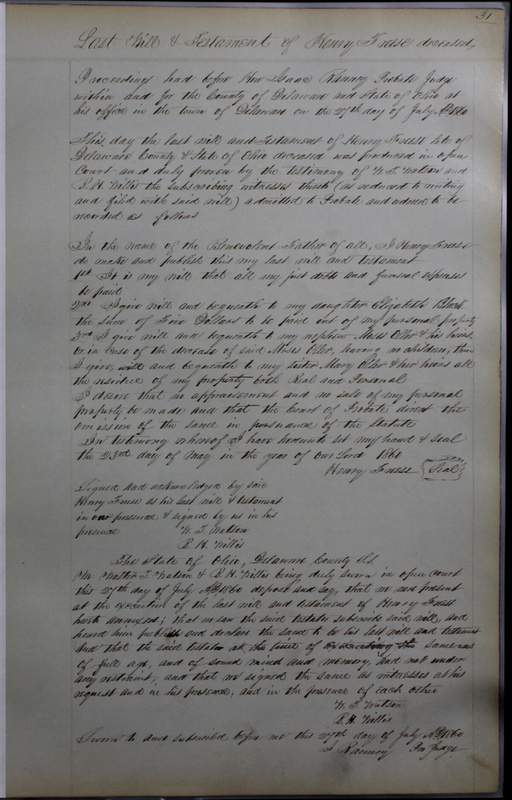 31
Last Will & Testament of Henry Freese deceased,
Proceedings had before Hon Isaac Ranney Probate Judge
within and for the County of Delaware and State of Ohio at
his office in the town of Delaware on the 27th day of July AD 1860
This day the last will and testament of Henry Freese late of
Delaware County & State of Ohio deceased was produced in open
Court and duly proven by the testimony of W. T. Watson and
B. H. Willis the subscribing witnesses thereto (as reduced to writing
and filed with said will) admitted to Probate and ordered to be
recorded as follows
In the name of the Benevolent Father of all, I Henry Freese
do make and publish this my last will and testament
1st It is my will that all my just debts and funeral expenses
be paid
2nd I give will and bequeath to my daughter Elizabeth Black
the sum of Five Dollars to be paid out of my personal property
3rd I give will and bequeath to my nephew Moses Oller & his heirs,
or in case of the decease of said Moses Oller, leaving no children, then
I give, will and bequeath to my sister Mary Oller & her heirs all
the residue of my property both Real and Personal
I desire that no appraisement and no sale of my personal
property be made and that the Court of Probate direct the
omission of the same in pursuance of the statute
In testimony whereof I have hereunto set my hand & seal
the 23rd day of May in the year of our Lord 1860
Henry Freese Seal
Signed and acknowledged by said
Henry Freese as his last will & testament
in our presence & signed by us in his
presence W. T. Watson
B. H. Willis
The State of Ohio, Delaware County SS.
We T. Watson & B. H. Willis being duly sworn in open court
this 27th day of July AD 1860 depose and say, that we were present
at the execution of the last will and testament of Henry Freese
hereto annexed; that we saw the said testator subscribe said will, and
heard him publish and declare the same to be his last will and testament
and that the said testator at the time of executing the same was
of full age, and of sound mind and memory, and not under
any restraint, and that we signed the same as witnesses at his
request and in his presence, and in the presence of each other
W. T. Watson
B. H. Willis
Sworn to and subscribed before me this 27th day of July AD 1860
I Ranney Pro Judge